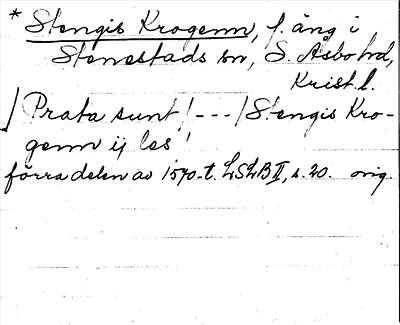 * Stengis Krogenn, f. äng i
Stenestads sn, S. Åsbo hd,
Krist. l.
/Prata sunt/---/Stengis Kro-
genn ij les
förra delen av 1570-t. LSLB II, s. 20. orig.